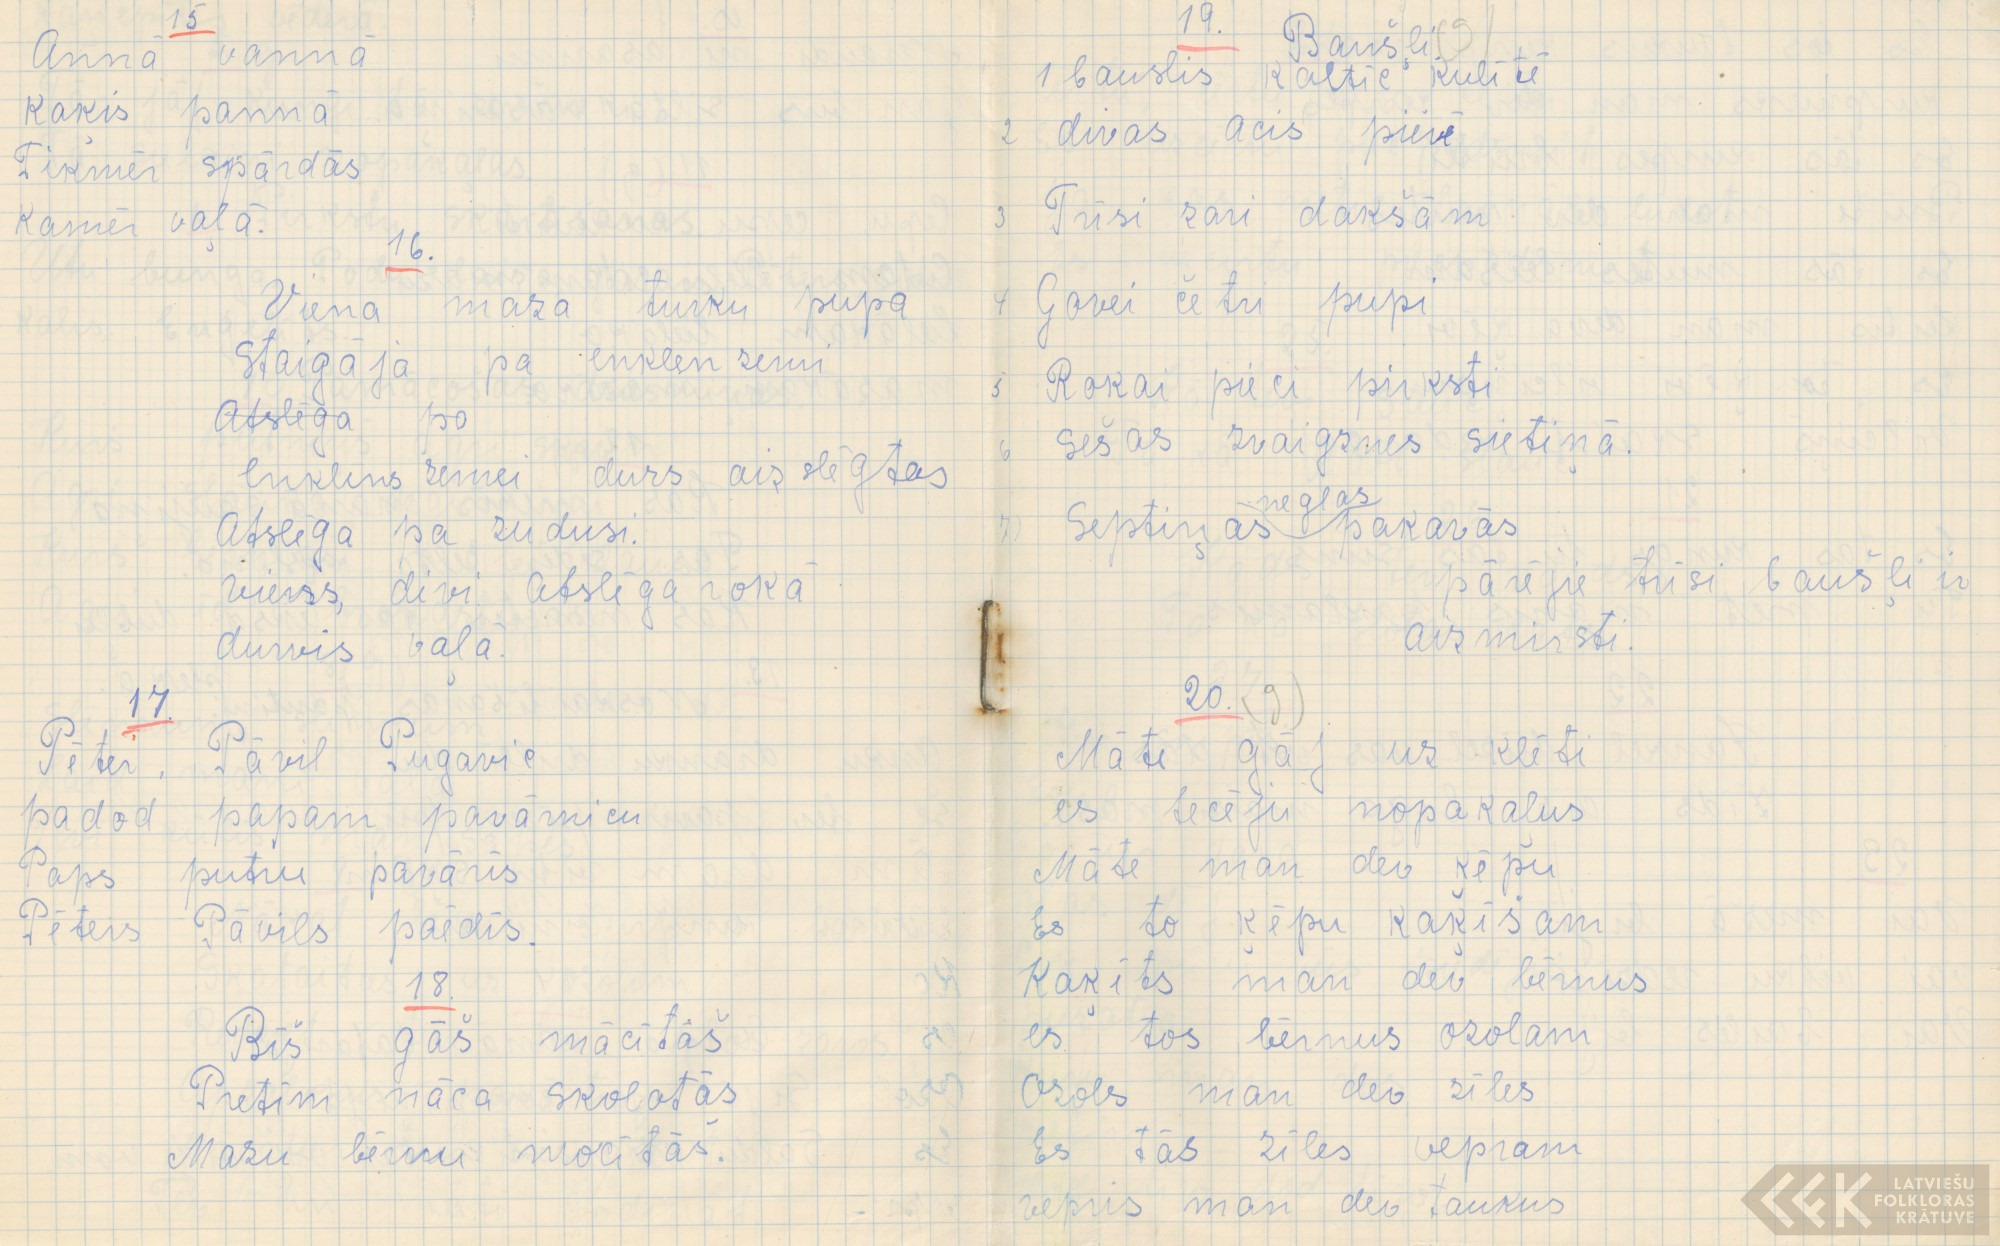 15
Annā vannā
Kaķis pannā
Tikmēr spārdās
Kamēr vaļā.
16.
Viena maza turku pupa
Staigāja pa enklenzemi
Atslēga po
enklens zemei durs aizslēgtas
Atslēga pa zudusi.
viens, divi Atslēga rokā
durvis vaļā.
17.
Pēter, Pāvil Pugavic
padod papam pavārnicu
Paps putru pavārīs
Pēters Pāvils paēdīs.
18.
Bīš gāš mācītāš
Pretim nāca skolotās
Mazu bērnu mocītāš.
19.
Baušļi (9)
1 bauslis Kaltic kulītē
2 divas acis pierē
3 Trīsi zari dakšām
4 Govei četri pupi
5 Rokai pieci pirksti
6 Sešas zvaigznes sietiņā.
7) Septiņas neglas pakavās
pārējie trīsi baušļi ir
aizmirsti.
20. (9)
Māte gāj uz klēti
es tecēju nopakaļus
Māte man dev ķēpu
Es to ķēpu kaķīšam
Kaķīts man dev bērnus
es tos bērnus ozolam
Ozols man dev zīles
Es tās zīles vepram
vepris man dev taukus
LATVIEŠU
FOLKLORAS
KRĀTUVE